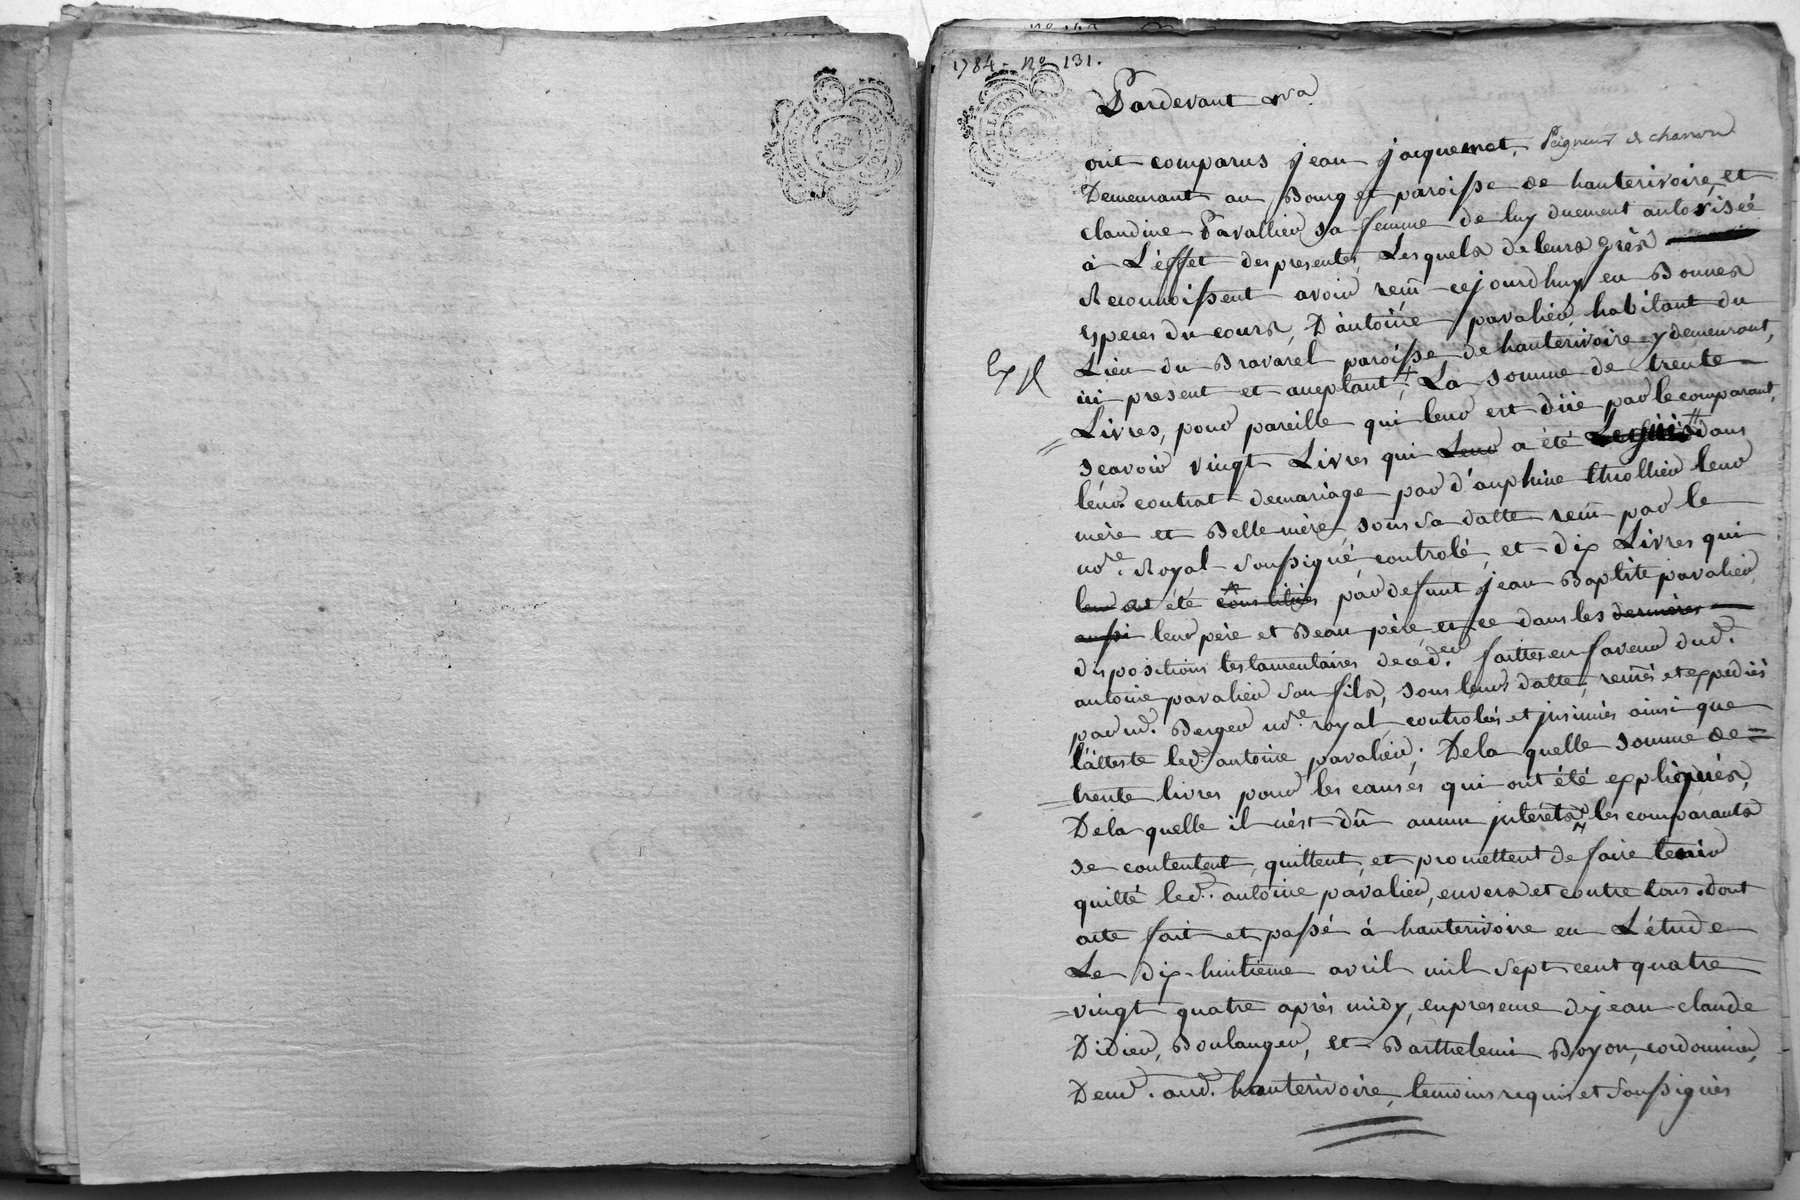 1784 - no 131.
Pardevant &ra
ont comparus jean jacquemot, Peigneur de chanvre
Demeurant au Bourg et paroisse de hauterivoire, et
claudine Pavallier sa femme de luy duement autorisée
à L'éffet des presentes, Lesquels de leurs grès
Reconnoissent avoir reçu cejourdhuy en Bonnes
Especes du cours, D'antoine pavalier, habitant du
Lieu du Bravarel paroisse de hauterivoire y demeurant,
ici present et aceptant, + La somme de trente
Livres, pour pareille qui leur est düe par le comparant,
sçavoir vingt Livres qui Leur a été dans
leur contrat de mariage par d'auphine thollier leur
mère et Belle mère, sous sa datte reçu par le
nore. Royal soussigné, controlé, et dix Livres qui
leur ont été constitués par defunt jean Baptiste pavalier,
aussi leur père et Beau père et ce dans les dernières
dispositions testamentaires decéd.er faittes en faveur dud.
antoine pavalier son fils, sous leur datte, reçües et expediés
par me. Berger nore. royal, controlées et jnsinués ainsi que
l'atteste led. antoine pavalier; De la quelle somme de
trente livres pour les causes qui ont été expliquées,
De la quelle il n'est dû aucun jnterets, les comparants
se contentent, quittent, et promettent de faire tenir
quitté led. antoine pavalier, envers et contre tous. dont
acte fait et passé à hauterivoire en L'étude
Le dix-huitieme avril mil sept cent quatre
vingt quatre après midy, en presence de jean claude
Didier, Boulanger, et Barthelemi Boyon, cordonnier,
Demt. aud. hauterivoire, temoins requis et soussignés